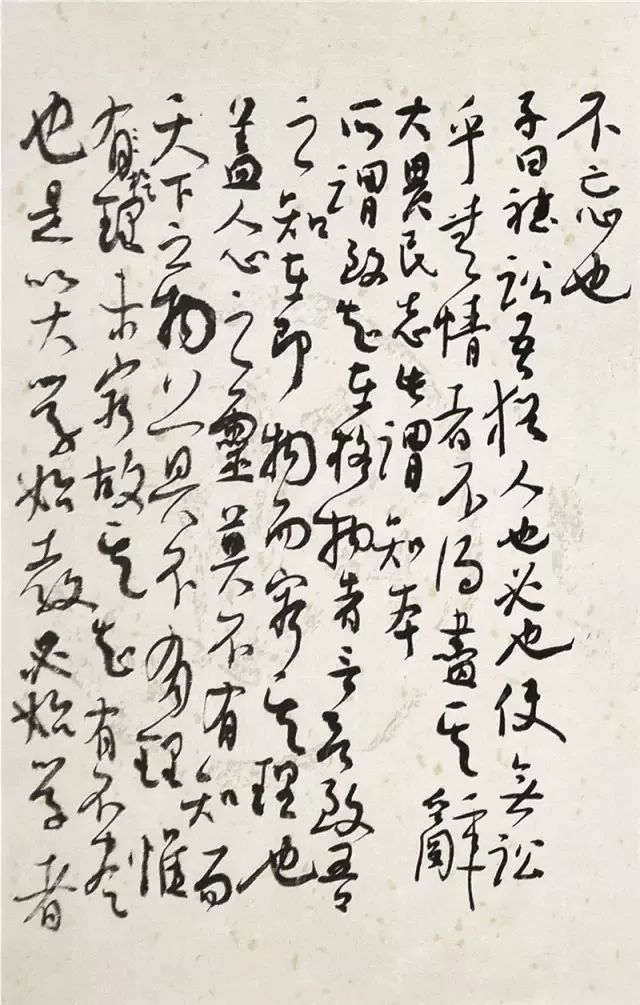 不忘也
子曰聽訟吾猶人也必也使無訟
乎無情者不得盡其辭
大畏民志此謂知本
所謂致知在格物者言欲致吾
之知在即物而窮其理也
蓋人心之靈莫不有知而
天下之物莫不有理惟
有於理未窮故其知有不盡
也是以大學始教必始學者